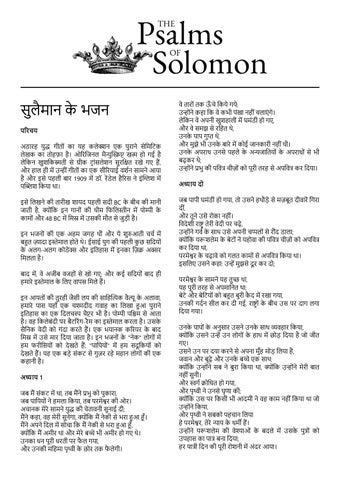 THE
Psalms
OF
Solomon
सुलैमान के भजन
परिचय
अठारह युद्ध गीतों का यह कलेक्शन एक पुराने सेमिटिक
लेखक का तोहफ़ा है। ओरिजिनल मैन्युस्क्रिप्ट खत्म हो गई है
लेकिन खुशकिस्मती से ग्रीक ट्रांसलेशन सुरक्षित रखे गए हैं,
और हाल ही में उन्हीं गीतों का एक सीरियाई वर्शन सामने आया
है और इसे पहली बार 1909 में डॉ. रेंडेल हैरिस ने इंग्लिश में
पब्लिश किया था।
इसे लिखने की तारीख शायद पहली सदी BC के बीच की मानी
जाती है, क्योंकि इन गानों की थीम फिलिस्तीन में पोम्पी के
कामों और 48 BC में मिस्र में उसकी मौत से जुड़ी है।
इन भजनों की एक अहम जगह थी और ये शुरुआती चर्च में
बहुत ज़्यादा इस्तेमाल होते थे। ईसाई युग की पहली कुछ सदियों
के अलग-अलग कोडेक्स और इतिहास में इनका ज़िक्र अक्सर
मिलता है।
बाद में, वे अजीब वजहों से खो गए; और कई सदियों बाद ही
हमारे इस्तेमाल के लिए वापस मिले हैं।
इन आयतों की तुरही जैसी लय की साहित्यिक वैल्यू के अलावा,
हमारे पास यहाँ एक चश्मदीद गवाह का लिखा हुआ पुराने
इतिहास का एक दिलचस्प चैप्टर भी है। पोम्पी पश्चिम से आता
है। वह किलेबंदी पर बैटरिंग रैम का इस्तेमाल करता है। उसके
सैनिक वेदी को गंदा करते हैं। एक भयानक करियर के बाद
मिस्र में उसे मार दिया जाता है। इन भजनों के "नेक" लोगों में
हम फरीसियों को देखते हैं; "पापियों" में हम सदूकियों को
देखते हैं। यह एक बड़े संकट से गुज़र रहे महान लोगों की एक
कहानी है।
अध्याय 1
जब मैं संकट में था, तब मैंने प्रभु को पुकारा,
जब पापियों ने हमला किया, तब परमेश्वर की ओर।
अचानक मेरे सामने युद्ध की चेतावनी सुनाई दी;
मैंने कहा, वह मेरी सुनेगा, क्योंकि मैं नेकी से भरा हुआ हूँ।
मैंने अपने दिल में सोचा कि मैं नेकी से भरा हुआ हूँ,
क्योंकि मैं अमीर था और मेरे बच्चे भी अमीर हो गए थे।
उनका धन पूरी धरती पर फैल गया,
और उनकी महिमा पृथ्वी के छोर तक फैलेगी।
वे तारों तक ऊँचे किये गये;
उन्होंने कहा कि वे कभी पंखा नहीं चलाएंगे।
लेकिन वे अपनी खुशहाली में घमंडी हो गए,
और वे समझ से रहित थे,
उनके पाप गुप्त थे;
और मुझे भी उनके बारे में कोई जानकारी नहीं थी।
उनके अपराध उनसे पहले के अन्यजातियों के अपराधों से भी
बढ़कर थे;
उन्होंने प्रभु की पवित्र चीज़ों को पूरी तरह से अपवित्र कर दिया।
अध्याय दो
जब पापी घमंडी हो गया, तो उसने हथौड़े से मज़बूत दीवारें गिरा
दीं,
और तूने उसे रोका नहीं।
विदेशी राष्ट्र तेरी वेदी पर चढ़े,
उन्होंने गर्व के साथ उसे अपनी चप्पलों से रौंद डाला;
क्योंकि यरूशलेम के बेटों ने यहोवा की पवित्र चीज़ों को अपवित्र
कर दिया था,
परमेश्वर के चढ़ावे को गलत कामों से अपवित्र किया था।
इसलिए उसने कहा: उन्हें मुझसे दूर कर दो;
परमेश्वर के सामने यह तुच्छ था,
यह पूरी तरह से अपमानित था;
बेटे और बेटियों को बहुत बुरी कैद में रखा गया,
उनकी गर्दन सील कर दी गई, राष्ट्रों के बीच उस पर दाग लगा
दिया गया।
उनके पापों के अनुसार उसने उनके साथ व्यवहार किया,
क्योंकि उसने उन्हें उन लोगों के हाथ में छोड़ दिया है जो जीत
गए।
उसने उन पर दया करने से अपना मुँह मोड़ लिया है,
जवान और बूढ़े और उनके बच्चे एक साथ;
क्योंकि उन्होंने सब ने बुरा किया था, क्योंकि उन्होंने मेरी बात
नहीं सुनी।
और स्वर्ग क्रोधित हो गया,
और पृथ्वी ने उनसे घृणा की;
क्योंकि उस पर किसी भी आदमी ने वह काम नहीं किया था जो
उन्होंने किया,
और पृथ्वी ने सबको पहचान लिया
हे परमेश्वर, तेरे न्याय के धर्मी हैं।
उन्होंने यरूशलेम की वेश्याओं के बदले में उसके पुत्रों को
उपहास का पात्र बना दिया;
हर यात्री दिन की पूरी रोशनी में अंदर आया।